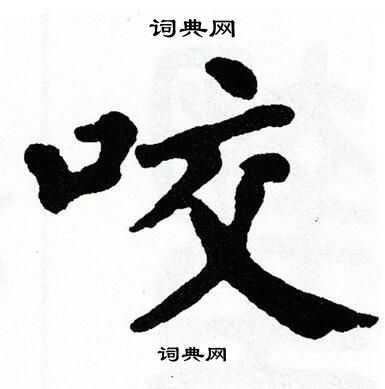 词典网
咬
词典网